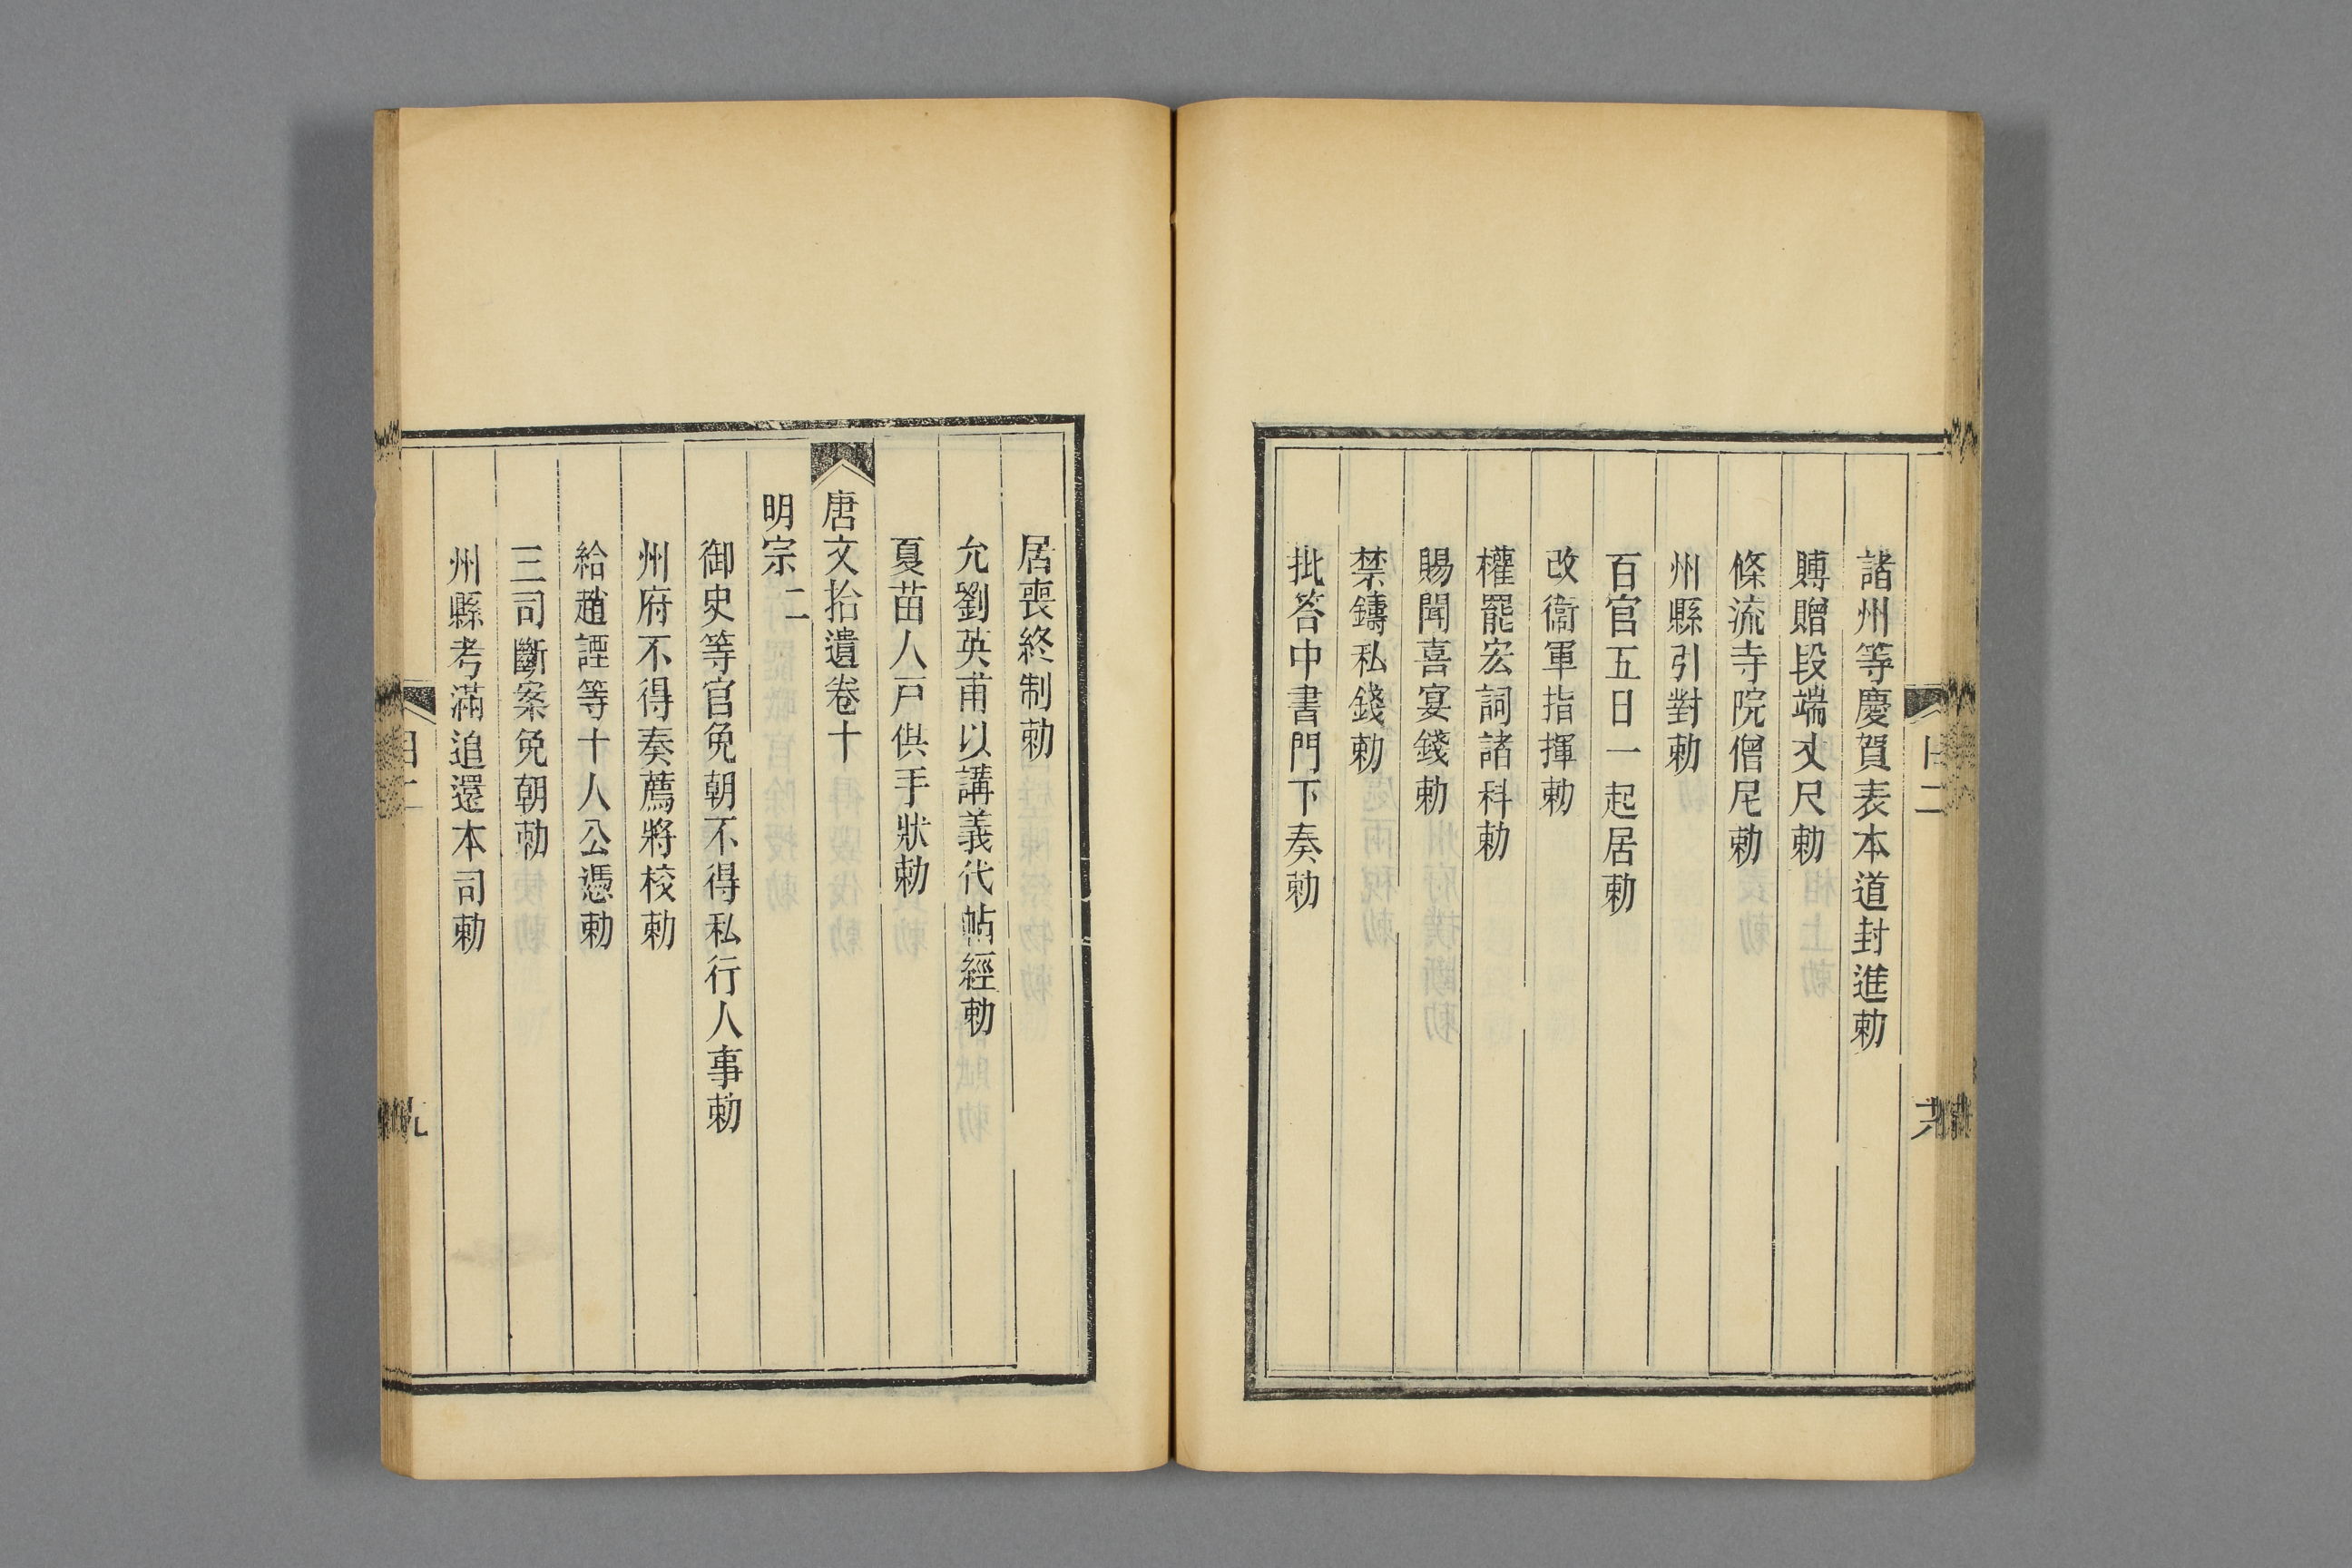 諸州等慶賀表本道封進勅
賻贈段端丈尺勅
條流寺院僧尼勅
州縣引對勅
百官五日一起居勅
改衞軍指揮勅
權罷宏詞諸科勅
賜聞喜宴錢勅
禁鑄私錢勅
批答中書門下奏勅
居喪終制勅
允劉英甫以講義代帖經勅
夏苗人戸供手狀勅
唐文拾遺卷十
明宗 二
御史等官免朝不得私行人事勅
州府不得奏薦將校勅
給趙諲等十人公憑勅
三司斷案免朝勅
州縣考滿追還本司勅